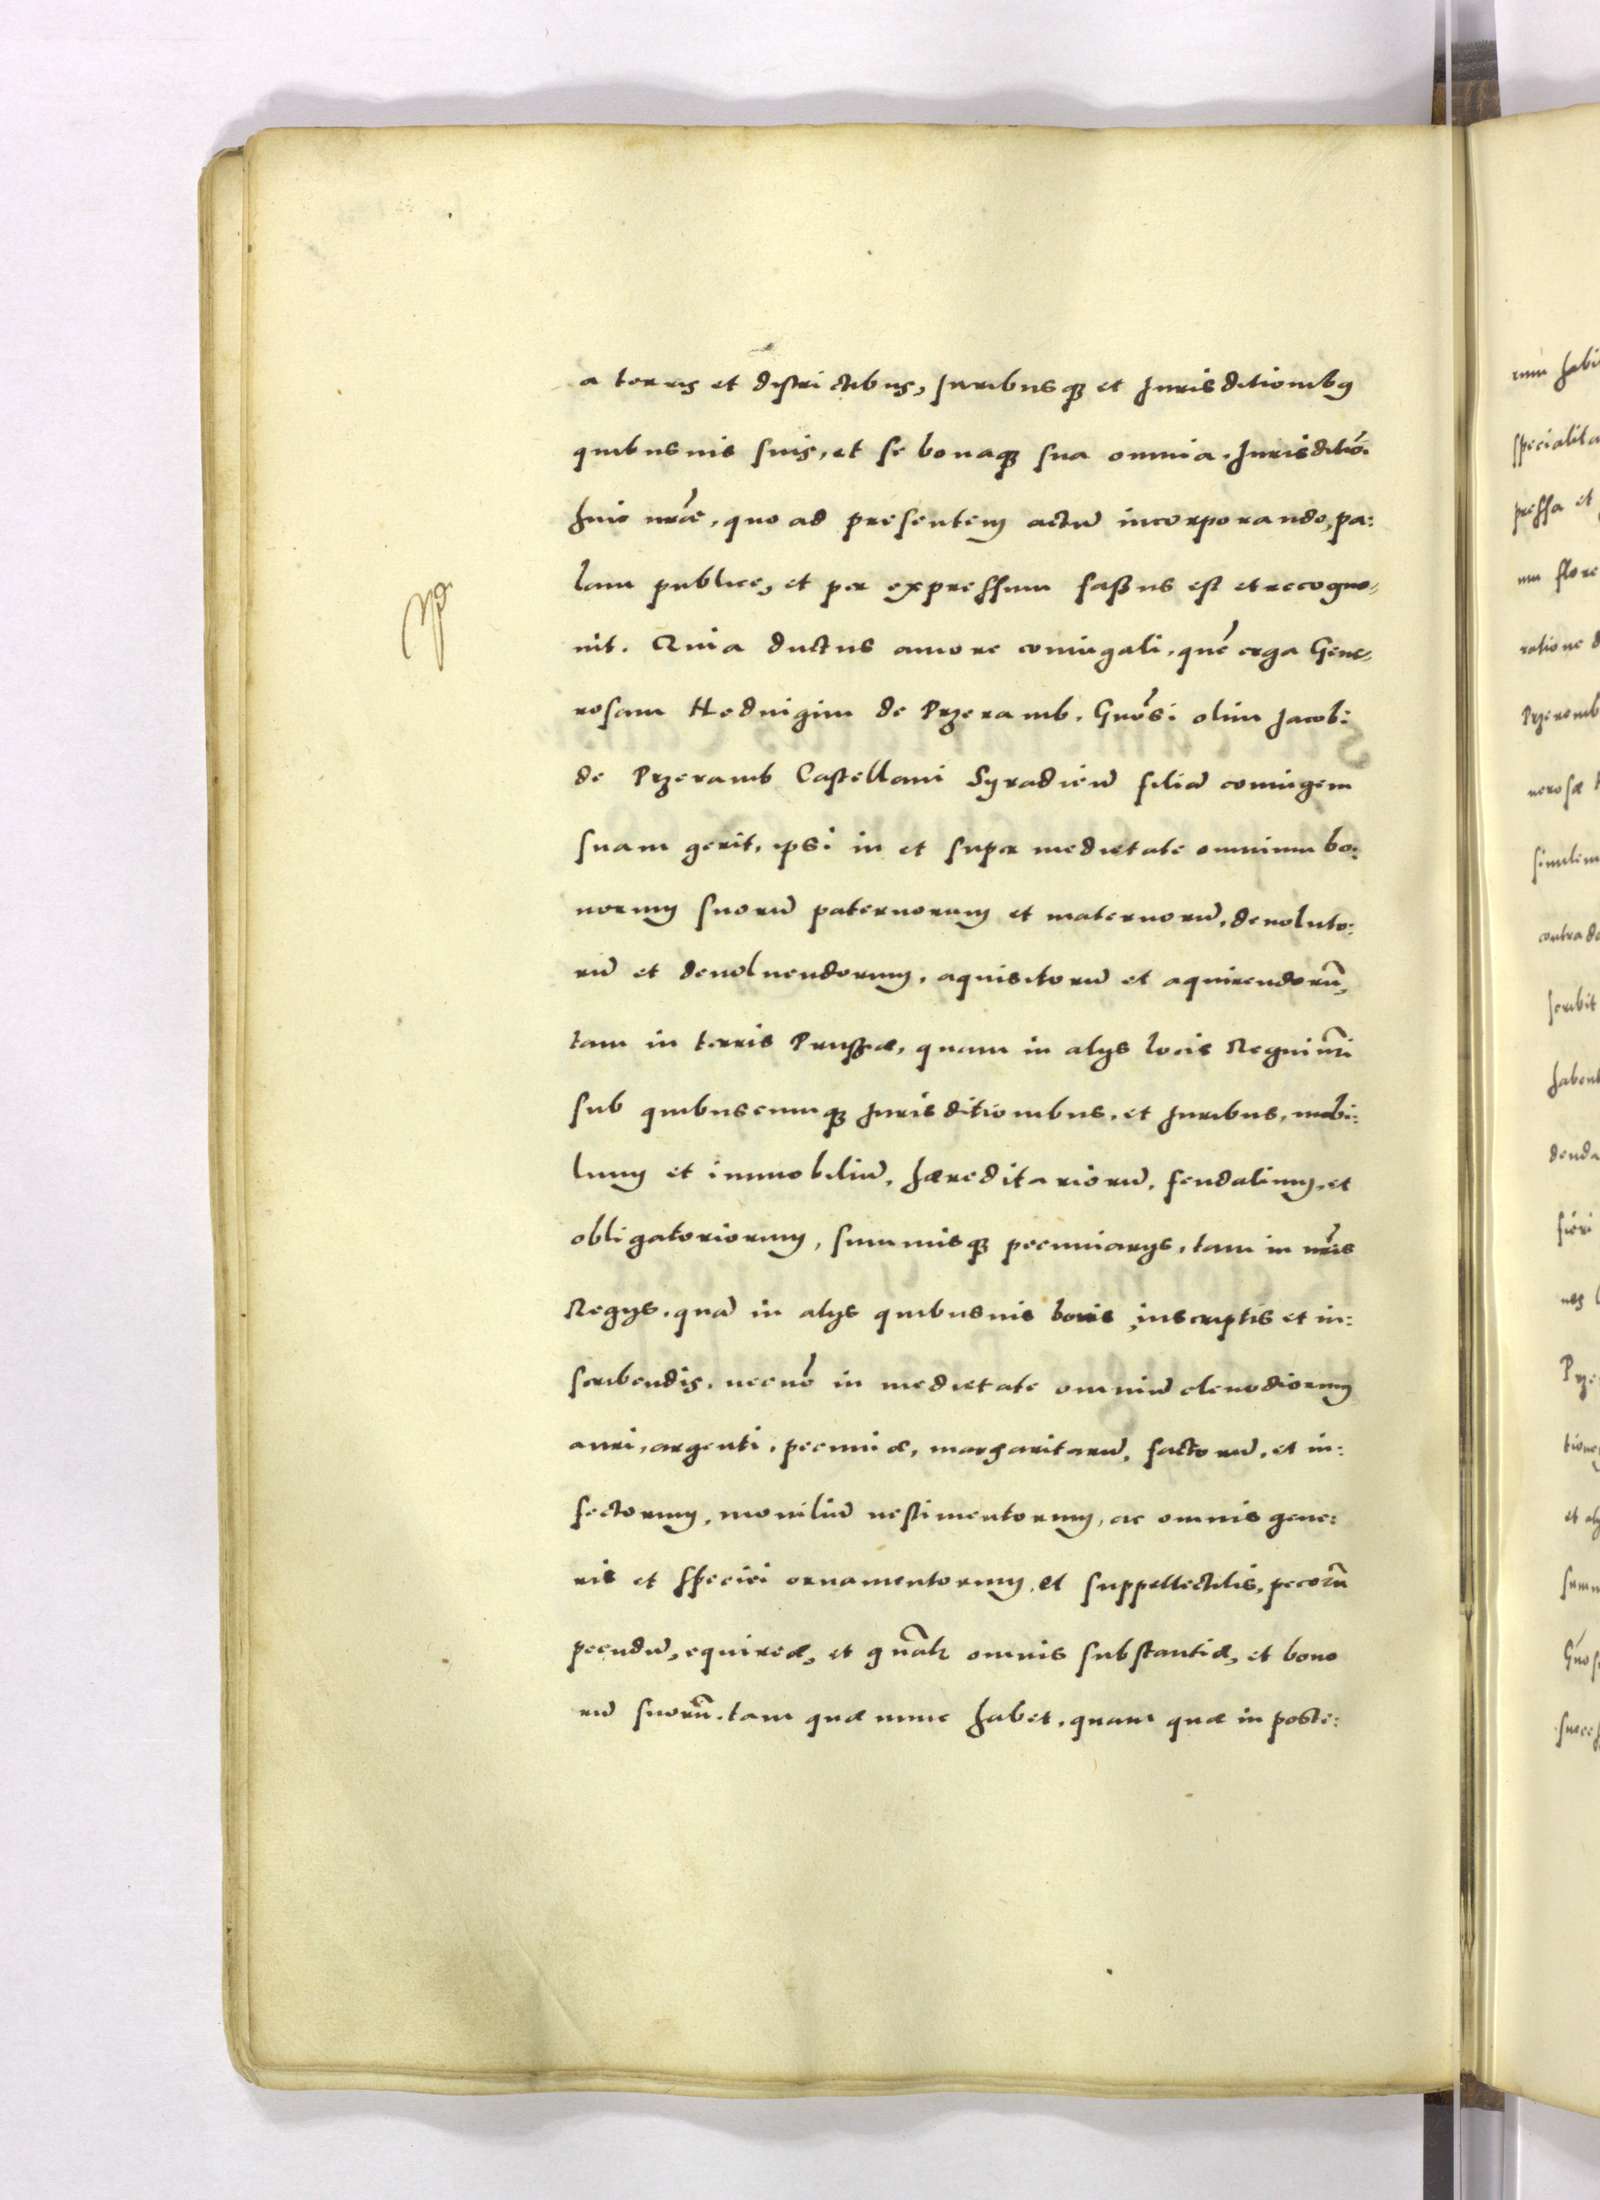 a terris et districtibus, Juribusq₃ et Jurisditionibus
quibusuis suis, et se bonaq₃ sua omnia Jurisditiōi
huic nr̄ae, quo ad presentem actū incorporando, pa:
lam publice, et per expressum faßus est et recogno-
uit. Quia ductus amore coniugali, quē erga Gene-
rosam Heduigim de Przeramb. Gnōsi olim Jacobi
de Przeramb Castellani Syradien̄ filiā coniugem
suam gerit, ipsi in et super medietate omnium bo:
norum suorū paternorum et maternorū, deuoluto:
rū et deuoluendorum, aquisitorū et aquirendorū,
tam in terris Prussiae, quam in alijs locis Regni nr̄i
sub quibuscumq₃ Jurisditionibus, et Juribus, mobi:
lium et immobiliū, haereditariorū, feudalium, et
obligatoriorum, summisq₃ pecuniarijs, tam in nr̄is
Regijs, quā in alijs quibusuis bonis inscriptis et in:
scribendis, necnō in medietate omniū clenodiorum
auri, argenti, pecuniae, margaritarū, factorū, et in:
fectorum, moniliū uestimentorum, ac omnis gene:
ris et speciei ornamentorum, et suppellectilis, pecorū
pecudū, equireae, et gn̄alr omnis substantiae, et bono
rū suorū, tam quae nunc habet, quam quae in poste: